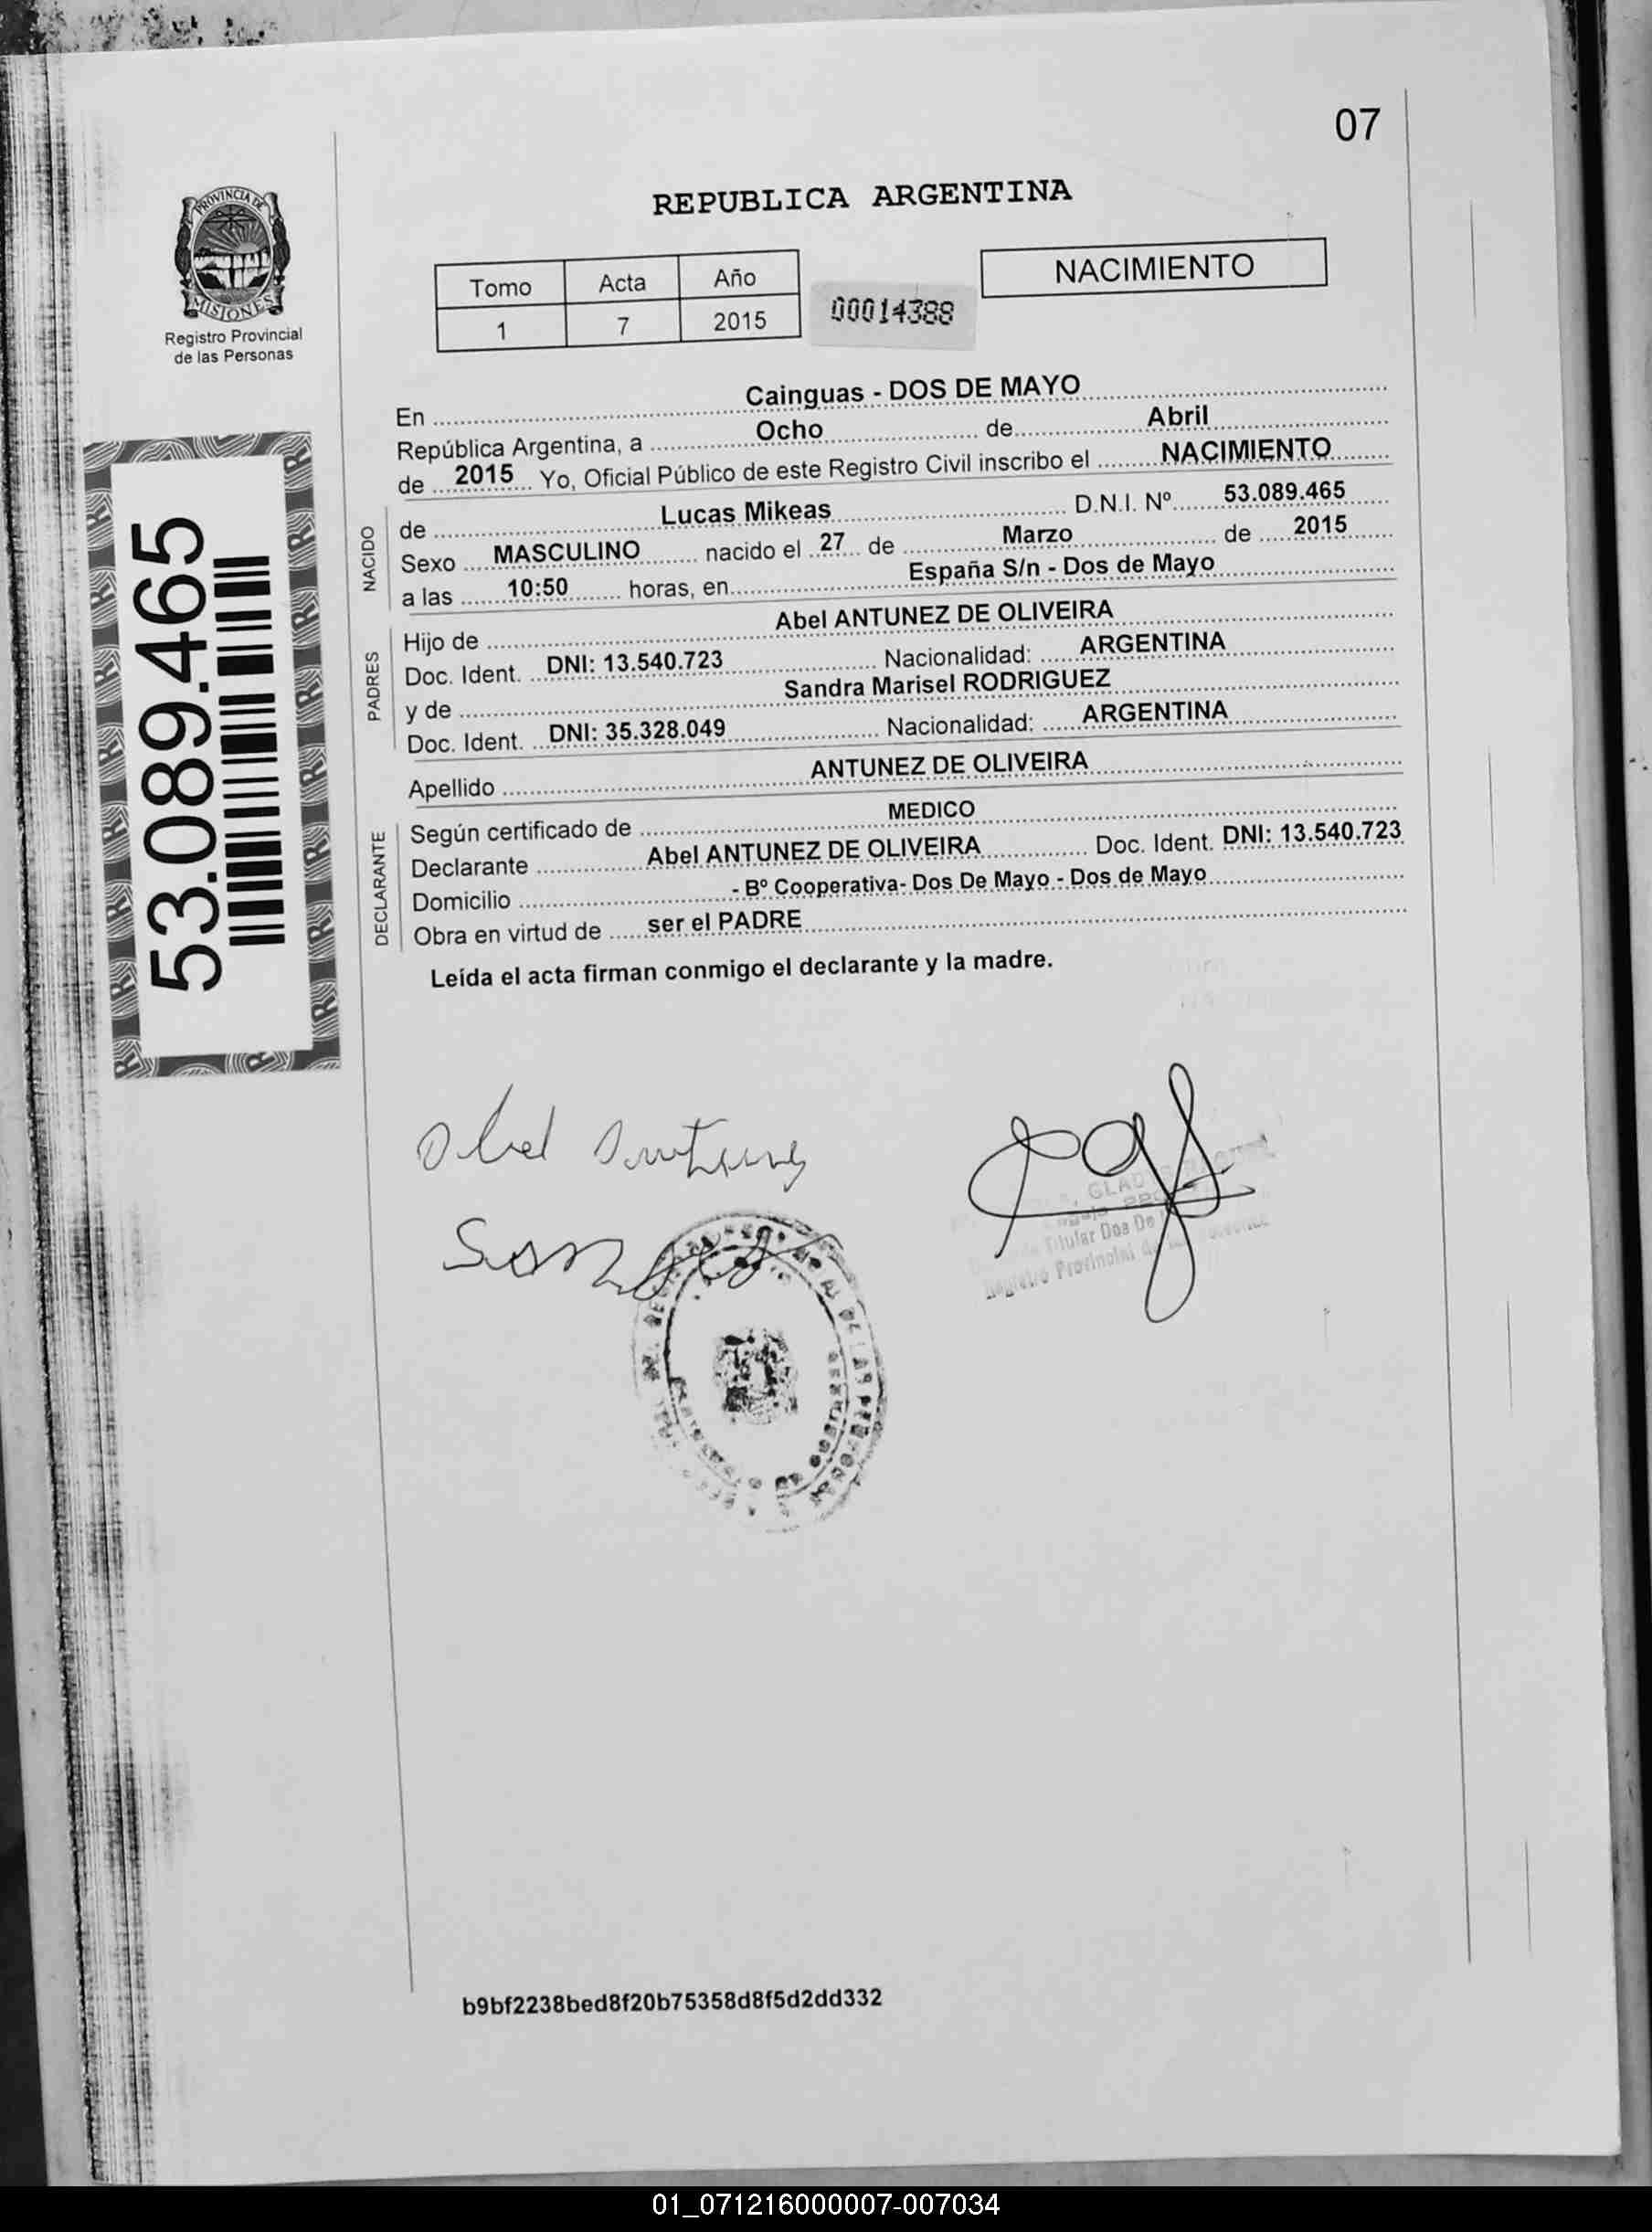 07
PROVINCIA DE
MISIONES
Registro Provincial
de las Personas
REPUBLICA ARGENTINA
Tomo Acta Año
1 7 2015
00014388
NACIMIENTO
53.089.465
En Cainguas - DOS DE MAYO
República Argentina, a Ocho de Abril
de 2015 Yo, Oficial Público de este Registro Civil inscribo el NACIMIENTO
NACIDO
de Lucas Mikeas D.N.I. Nº 53.089.465
Sexo MASCULINO nacido el 27 de Marzo de 2015
a las 10:50 horas, en España S/n - Dos de Mayo
PADRES
Hijo de Abel ANTUNEZ DE OLIVEIRA
Doc. Ident. DNI: 13.540.723 Nacionalidad: ARGENTINA
y de Sandra Marisel RODRIGUEZ
Doc. Ident. DNI: 35.328.049 Nacionalidad: ARGENTINA
Apellido ANTUNEZ DE OLIVEIRA
DECLARANTE
Según certificado de MEDICO
Declarante Abel ANTUNEZ DE OLIVEIRA Doc. Ident. DNI: 13.540.723
Domicilio - Bº Cooperativa- Dos De Mayo - Dos de Mayo
Obra en virtud de ser el PADRE
Leída el acta firman conmigo el declarante y la madre.
Abel Antunes
Titular Dos De
Registro Provincial de
b9bf2238bed8f20b75358d8f5d2dd332
01_071216000007-007034